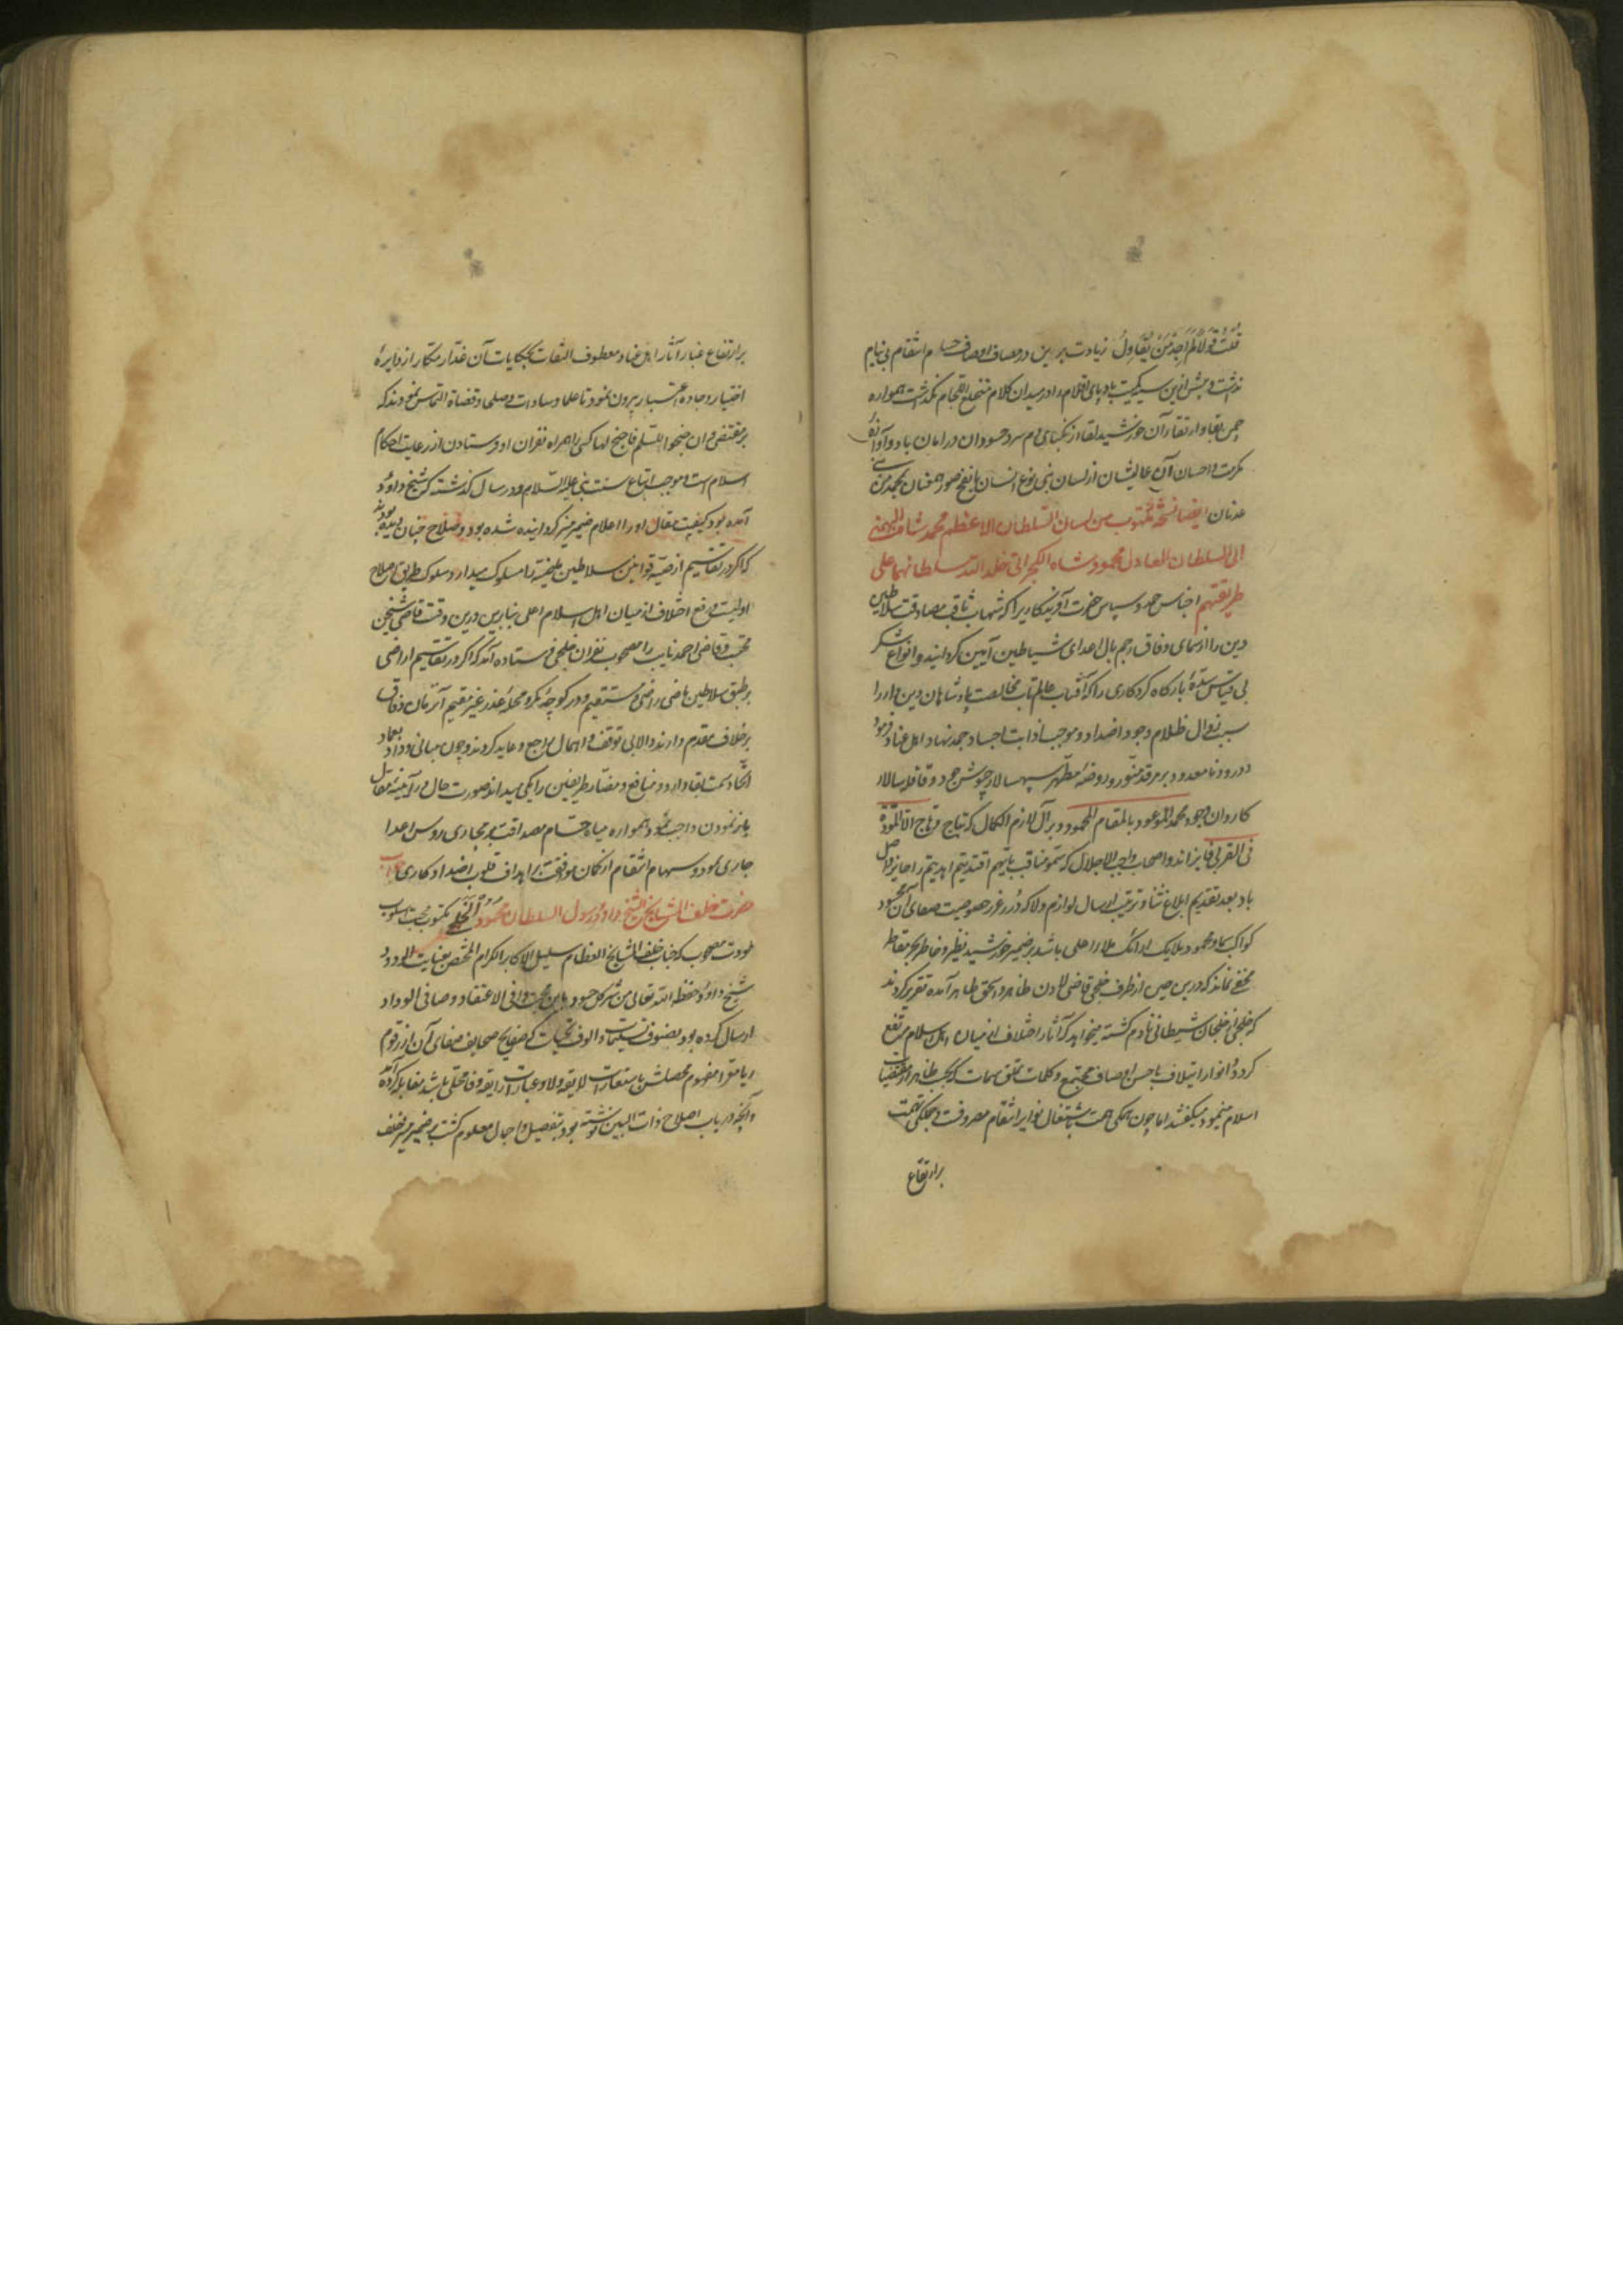 زیادت برین در مصاف اوصاف حسام انتقام بی نیام
نداشت و پیش ازین کمیت بادپای اقلام را در میدان کلام نگذاشت همواره
چمن بقا و ارتقا آن خورشید لقا از دم سرد حسودان در امان باد و آوازهٔ
مکرمت و احسان آن عالیشان از لسان بنی نوع انسان با نفخ صور بمحمد من بنی
عدنان ایضا نسخة مکتوب من لسان السلطان الاعظم محمد شاه البهمنی
الی السلطان العادل محمود شاه الکجراتی خلد الله سلطانهما علی
طریقتهم اجناس حمد و سپاس حضرت آفریدکاریرا که شهاب ثاقب مصادقت سلاطین
دین را از سمای وفاق رجم بال اعدای شیاطین آیین کردانید و انواع شکر
بی قیاس سدهٔ بارکاه کردکاری را که آفتاب عالمتاب مخالصت پادشاهان دین دار را
سبب زوال ظلام وجود اضداد و موجب اذابت اجساد جمد نهاد اهل عناد فرمود
و درود نامعدود بر مرقد منور و روضهٔ مطهر سپهسالار جیوش جود و قافله سالار
کاروان وجود محمد الموعود بالمقام المحمود و بر آل لازم الکمال که بتاج وهاج الا المودة
فی القربی فایزاند و اصحاب واجب الاجلال که سمو مناقب بایهم اقتدیتم اهتدیتم را حایز واصل
باد بعد تقدیم ابلاغ ثنا و ترتیب ارسال لوازم ولا که درر غرر خصوصیت صفای آن محسود
کواکب سما و محمود ملایک ملا اعلی باشد بر ضمیر خورشید نظیر و خاطر بحر مقاطر
مخفی نماند که درین حین از طرف خلجی قاضی لادن ظاهر آمده تقریر کردند
که خلجی از خلجان شیطانی نادم کشته میخواهد که آثار اختلاف از میان اهل اسلام مرتفع
کردد و انوار ایتلاف باحسن اوصاف مجتمع و کلمات تملق سمات که بحسب ظاهر از مقتضیات
اسلام مینمود میکفتند اما چون همکی همت باشتغال نوایر انتقام مصروفست و جملکی نهمت
بر ارتفاع
بر ارتفاع غبار آثار اهل عناد معطوف التفات بحکایات آن غدار مکار از دایرهٔ
اختیار و جادهٔ اعتبار بیرون نمود تا علما و سادات و صلحا و قضاة التماس نمودند که
بر مقتضی وان جنحوا للسلم فاجنح لها کسی را همراه نفران او فرستادن از رعایت احکام
اسلام است و موجب اتباع سنت نبی علیه السلام و در سال کذشته که شیخ داود
آمده بود کیفیت مقال او را اعلام ضمیر منیر کردانیده شده بود و صلاح چنان دیده بودند
که اکر در تقسیم ارضیه قوانین سلاطین ماضیه را مسلوک میدارد سلوک طریق صلاح
اولیست و رفع اختلاف از میان اهل اسلام اعلی بنابرین درین وقت قاضی شیخن
محتسب و قاضی احمد نایب را مصحوب نفران خلجی فرستاده آمد که اکر در تقاسیم اراضی
بر طبق سلاطین ماضی راضی و مستقیم و در کوچهٔ مکر و محلهٔ غدر غیر مقیم
بر خلاف مقدم دارند والا بی توقف و اهمال راجع و عاید کردند و چون مبانی وداد بعماد
اتحاد سمت بقا دارد و منافع و مضار طرفین را یکی میداند صورت حال در آیینهٔ مقال
باز نمودن واجب نمود همواره میاه حسام مصداقت بر مجاری رؤس اعدا
جاری بود و سهام انتقام از کمان موافقت بر اهداف قلوب اضداد کاری جواب
حضرت خلف المشایخ الشیخ داود رسول السلطان محمود الخلجی مکتوب محبت اسلوب
مودت مصحوب که جناب خلف المشایخ العظام سلیل الاکابر الکرام المختص بعنایت الودود
شیخ داود حفظه الله تعالی من شر کل حسود باین محب وافی الاعتقاد و صافی الوداد
ارسال کرده بود بصنوف تسلیمات و الوف تحیات که صفایح صحایف صفای آن از رقوم
ریا معرا مفهوم محصلش باستعارات لایقه ولا و عبارات رایقه وفا محلی باشد مقابله کرده آمد
و آنچه در باب اصلاح ذات البین نوشته بود بتفصیل و اجمال معلوم کشت بر ضمیر منیر خلف